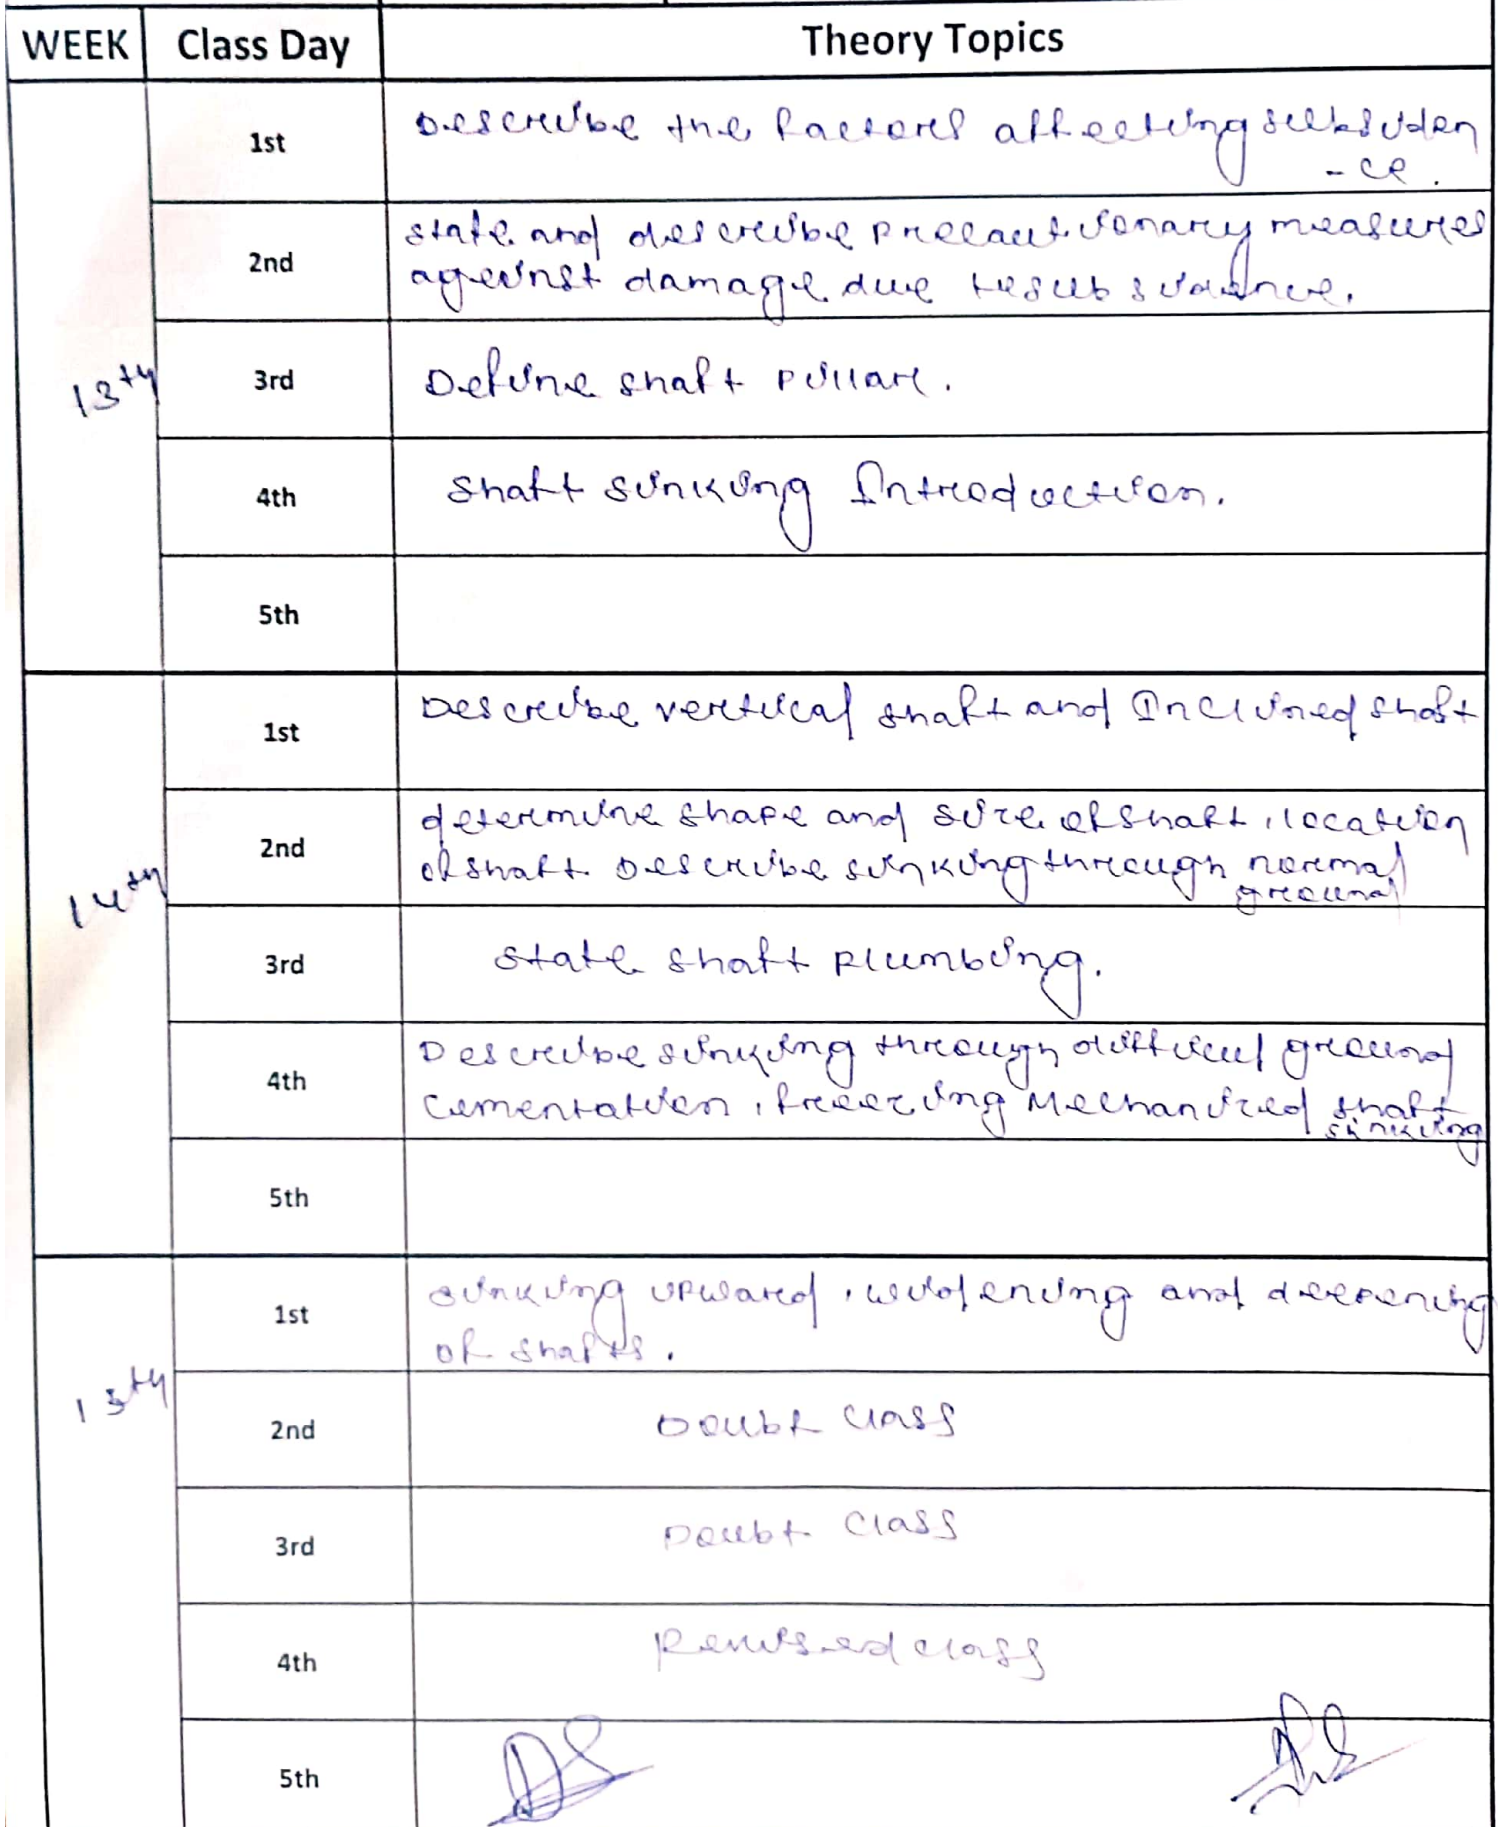 WEEK Class Day Theory Topics
1st Describe the factors affecting subsiden
-ce.
2nd state and describe precautionary measures
against damage due to subsidence.
13th 3rd Define shaft pillar.
4th Shaft sinking Introduction.
5th
1st Describe vertical shaft and Inclined shaft
2nd determine shape and size of shaft, location
of shaft. Describe sinking through normal
ground
14th
3rd State shaft plumbing.
4th Describe sinking through difficul ground
cementation, freezing Mechanized shaft
sinking
5th
1st sinking upward, widening and deepening
of shafts.
15th
2nd Doubt class
3rd Doubt class
4th Revised class
5th